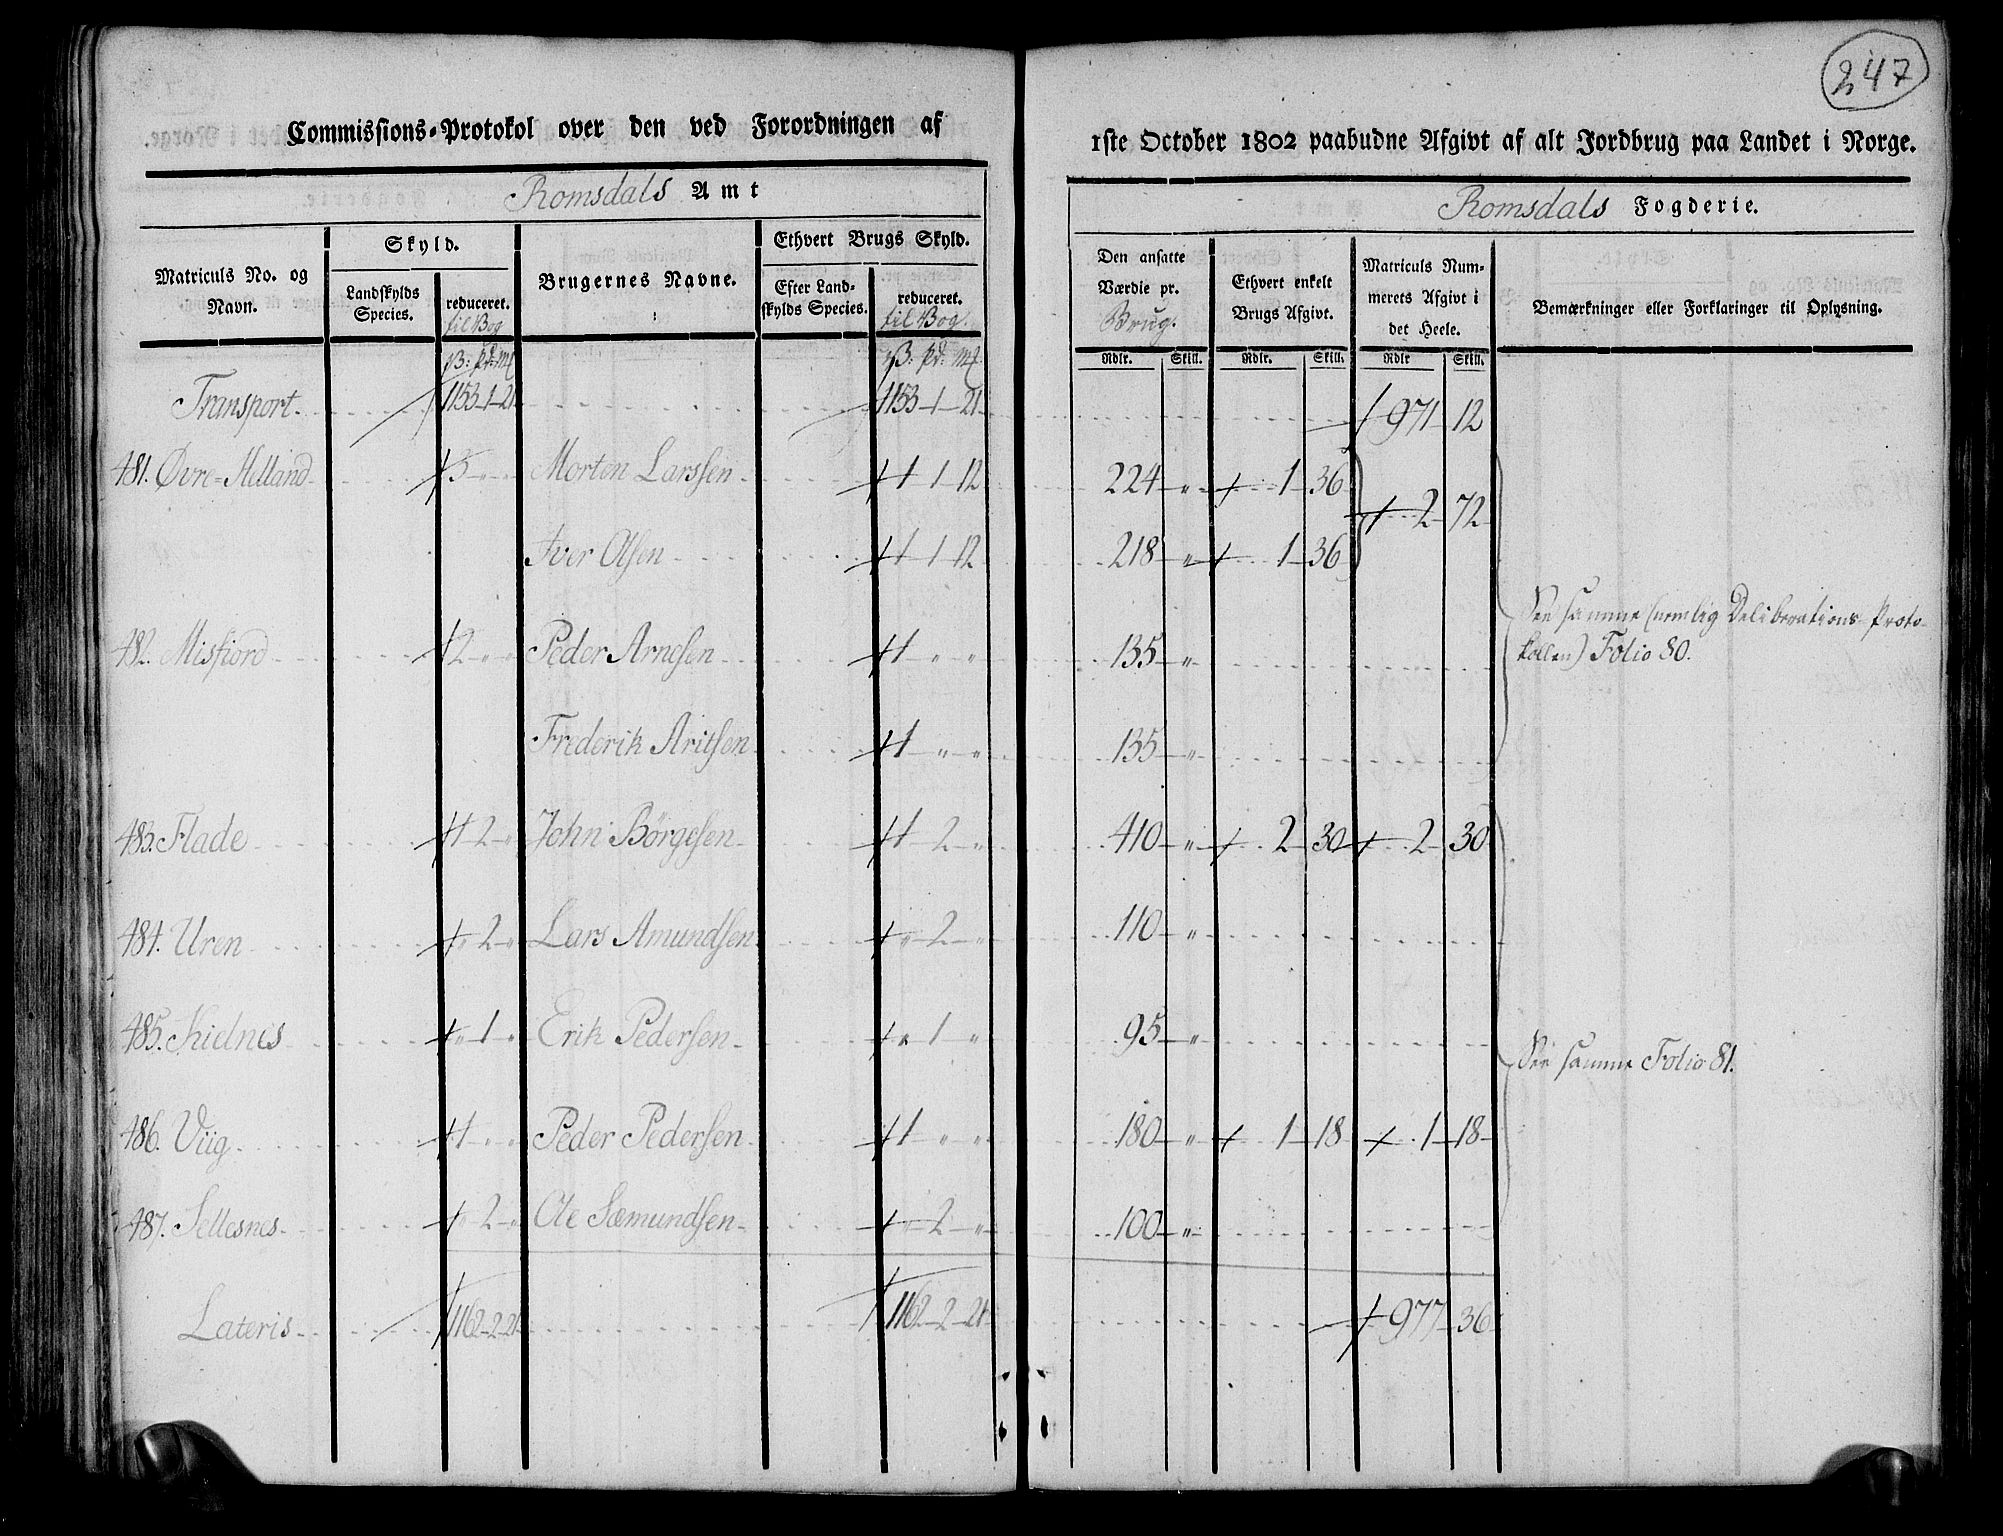 247
Commissions-Protokol over den ved Forordningen af 1ste October 1802 paabudne Afgivt af alt Jordbrug paa Landet i Norge.
Romsdals Amt
Romsdals Fogderie.
Matriculs No. og Navn.
Skyld.
Landskylds Species.
reduceret.
til Bog
Brugernes Navne.
Ethvert Brugs Skyld.
Efter Landskylds Species.
reduceret.
til Bog
Den ansatte Værdie pr.
Brug.
Ethvert enkelt Brugs Afgivt.
Matriculs Nummerets Afgivt i det Heele.
Bemærkninger eller Forklaringer til Oplysning.
Rdlr. Skill. Rdlr. Skill. Rdlr Skill.
Transport. 1153-1-21 1153-1-21 971 12
481. Øvre-Helland 3 " " Morten Larssen 1 1 12 224 " 1 36
2 72
Iver Olsen 1 1 12 218 " 1 36
482. Misfiord 2 " " Peder Arnesen 1 " " 135 "
See samme (nemlig Deliberations Proto-
kollen) Folio 80.
Frederik Aritsen 1 " " 135 "
483. Flade 1 2 " John Börgesen 1 2 " 410 " 2 30 2 30
484. Uren " 2 " Lars Amundsen " 2 " 110 "
485. Kielnes " 1 " Erik Pedersen " 1 " 95 "
See samme Folio 81.
486. Viig 1 " " Peder Pedersen 1 " " 180 " 1 18 1 18
487. Sellesnes " 2 " Ole Sæmundsen " 2 " 100 "
Lateris 1162-2-21 1162-2-21 977 36